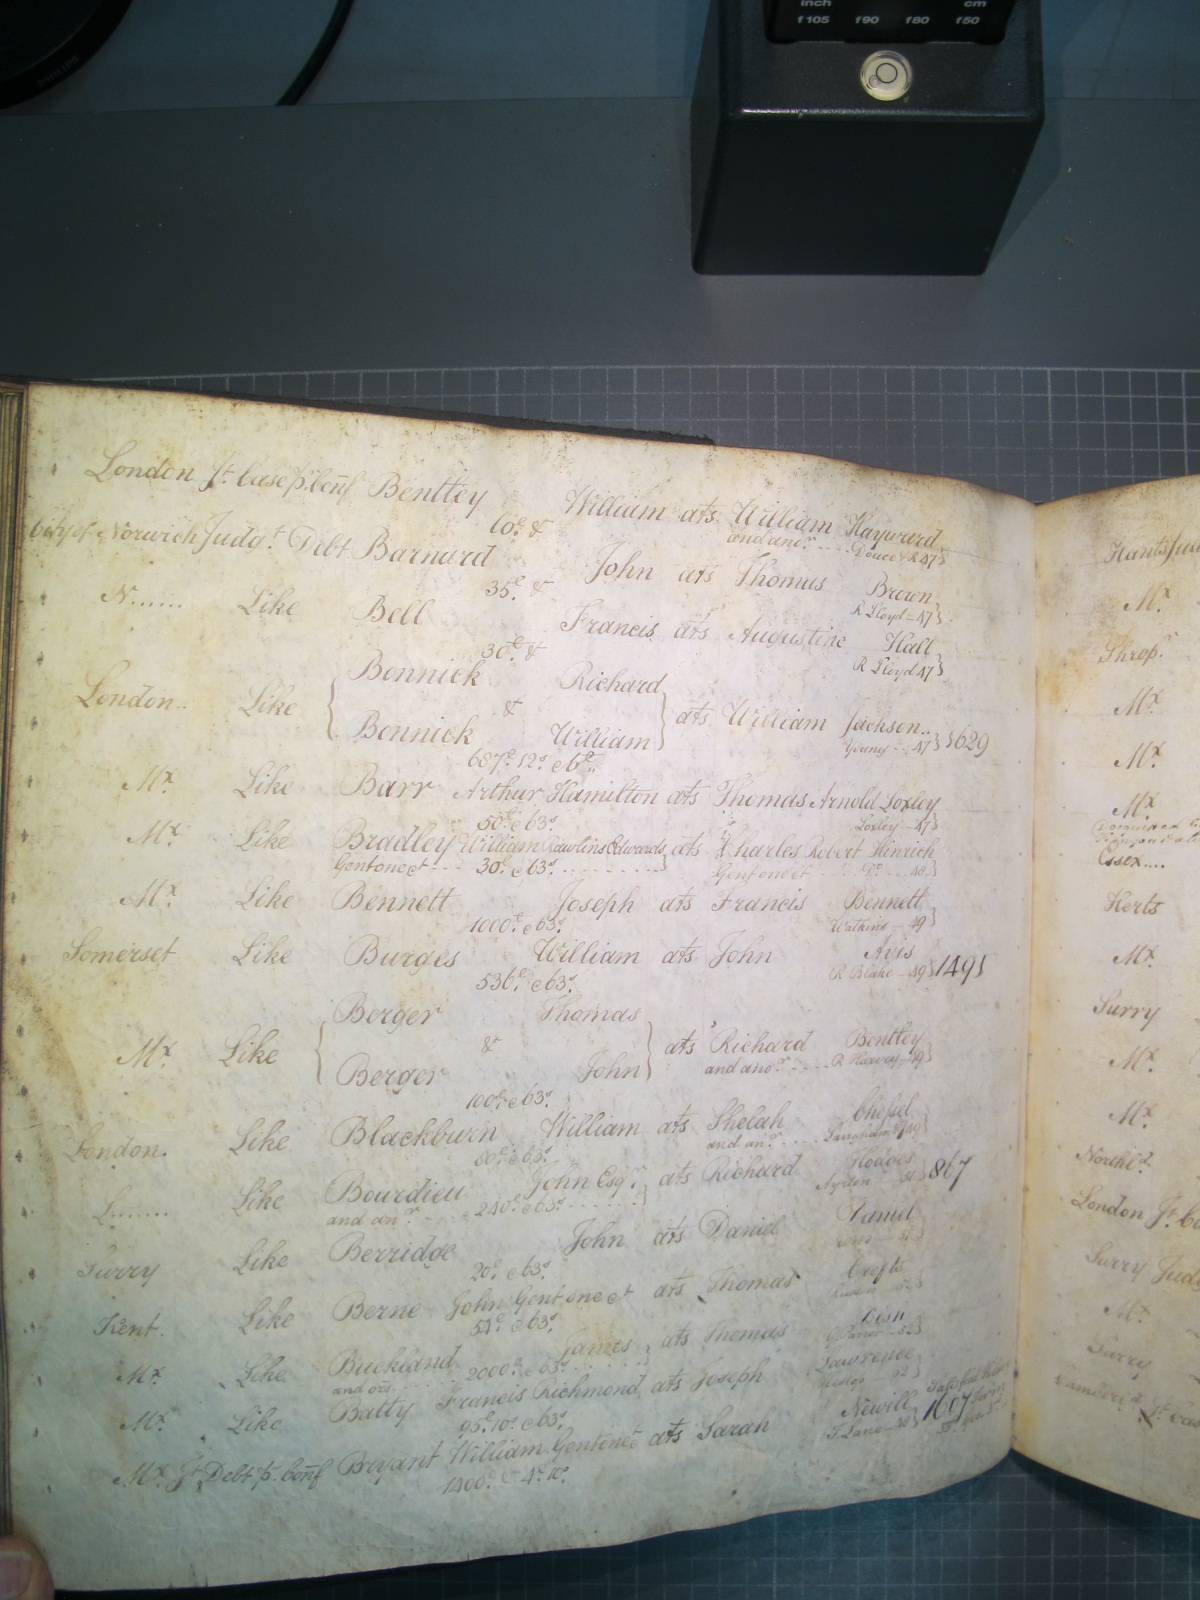 inch cm
f105 f90 f80 f50
PHILIPS
London Jt. Case p. Conf Bentley William ats William Hayward
60£ & and anor. Douce & R 47
City of Norwich Judgt. Debt Barnard John ats Thomas Brown
35£ & R Lloyd 47
N...... Like Bell Francis ats Augustine Hall
30£ & R Lloyd 47
London.. Like Bonnick Richard
& ats William Jackson..
Bonnick William Young 47 1629
687£ 12s
Mx. Like Barr Arthur Hamilton ats Thomas Arnold Loxley
50£ & 63s Loxley 47
Mx. Like Bradley William Rawlins Edwards ats Charles Robert Hinrich
Gent one et 30£ & 63s. Gent one et Do. 48
Mx. Like Bennett Joseph ats Francis Bennett
1000£ & 63s Watkins 49
Somerset Like Burges William ats John Avis
536£ & 63s. R Blake 49 1491
Berger Thomas
Mx. Like & ats Richard Bentley
and anor. R Harvey 49
Berger John
100£ & 63s.
London. Like Blackburn William ats Shelah
80£ & 63s. and anr. 49
L....... Like Bourdieu John Esqr. ats Richard Hodges
and anr. 240£ & 63s. 51 867
Surry Like Berridge John ats Daniel Daniel
20£ & 63s.
Kent. Like Berne John Gent one et ats Thomas Crofts
51£ & 63s.
Mx. Like Buckland James ats Thomas Dish
and ors 2000£ & 63s. 52
Mx. Like Batty Francis Richmond ats Joseph Lawrence
95£ 10s & 63s. 52
Mx. Jt. Debt p. Conf Bryant William Gent one ats Sarah Newill
1400£ & 4£ 10s. T. Lane 48 1607
Hants
Mx.
Shrops.
Mx.
Mx.
Mx.
Essex....
Herts
Mx.
Surry
Mx.
Mx.
Northld.
London Jt.
Surry Jud
Mx.
Surry